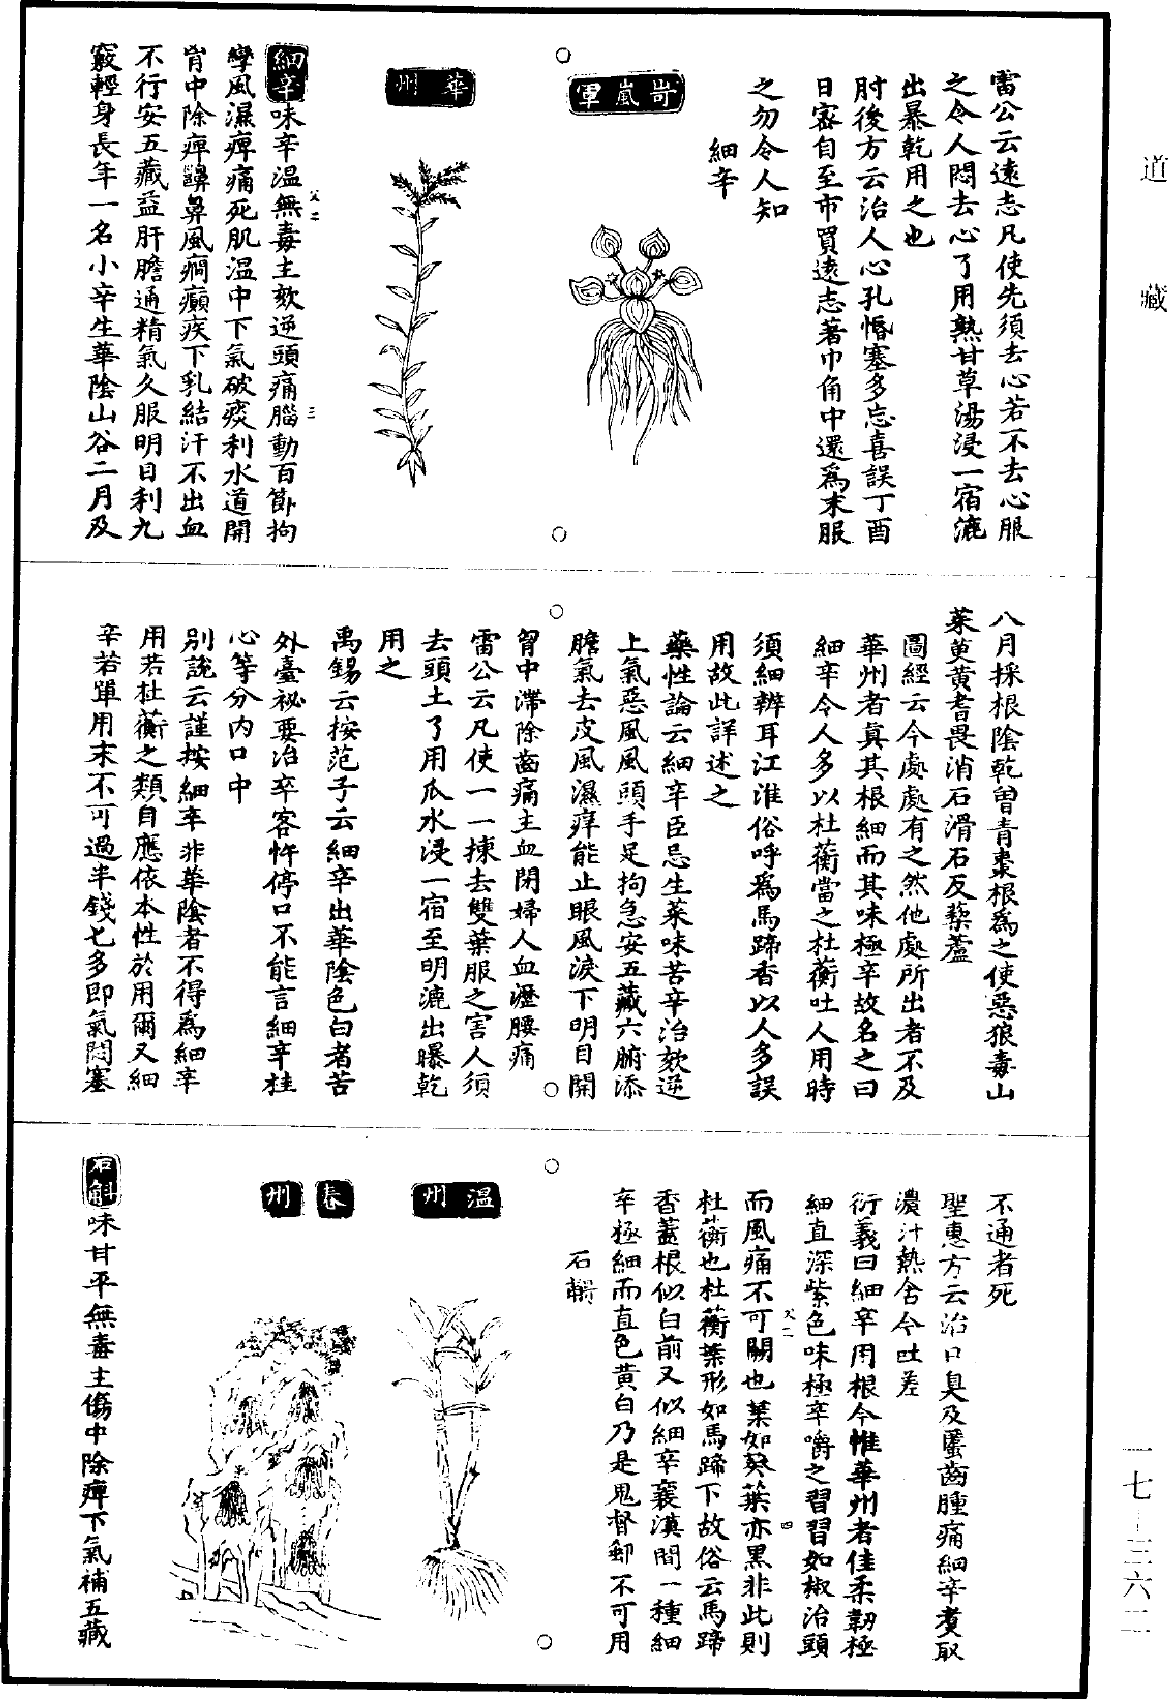 道藏
雷公云遠志凡使先須去心若不去心服
之令人悶去心了用熟甘草湯浸一宿漉
出暴乾用之也
肘後方云治人心孔惛塞多忘喜誤丁酉
日密自至市買遠志著巾角中還爲末服
之勿令人知
細辛
岢嵐軍
華州
細辛味辛溫無毒主欬逆頭痛腦動百節拘
攣風濕痺痛死肌溫中下氣破痰利水道開
胷中除痺齆鼻風癇癲疾下乳結汗不出血
不行安五藏益肝膽通精氣久服明目利九
竅輕身長年一名小辛生華陰山谷二月及
父二
三
八月採根陰乾曾青棗根爲之使惡狼毒山
茱萸黃耆畏消石滑石反藜蘆
圖經云今處處有之然他處所出者不及
華州者真其根細而其味極辛故名之曰
細辛今人多以杜蘅當之杜蘅吐人用時
須細辨耳江淮俗呼爲馬蹄香以人多誤
用故此詳述之
藥性論云細辛臣忌生菜味苦辛治欬逆
上氣惡風風頭手足拘急安五藏六腑添
膽氣去皮風濕痒能止眼風淚下明目開
胷中滯除齒痛主血閉婦人血瀝腰痛
雷公云凡使一一揀去雙葉服之害人須
去頭土了用瓜水浸一宿至明漉出曝乾
用之
禹錫云按范子云細辛出華陰色白者苦
外臺祕要治卒客忤停口不能言細辛桂
心等分內口中
別說云謹按細辛非華陰者不得爲細辛
用若杜蘅之類自應依本性於用爾又細
辛若單用末不可過半錢匕多即氣悶塞
不通者死
聖惠方云治口臭及䘌齒腫痛細辛煮取
濃汁熱含令吐差
衍義曰細辛用根今惟華州者佳柔韌極
細直深紫色味極辛嚼之習習如椒治頭
面風痛不可闕也葉如葵葉亦黑非此則
杜蘅也杜蘅葉形如馬蹄下故俗云馬蹄
香蓋根似白前又似細辛襄漢間一種細
辛極細而直色黃白乃是鬼督郵不可用
父二
四
石斛
溫州
春州
石斛味甘平無毒主傷中除痺下氣補五藏
一七—三六二